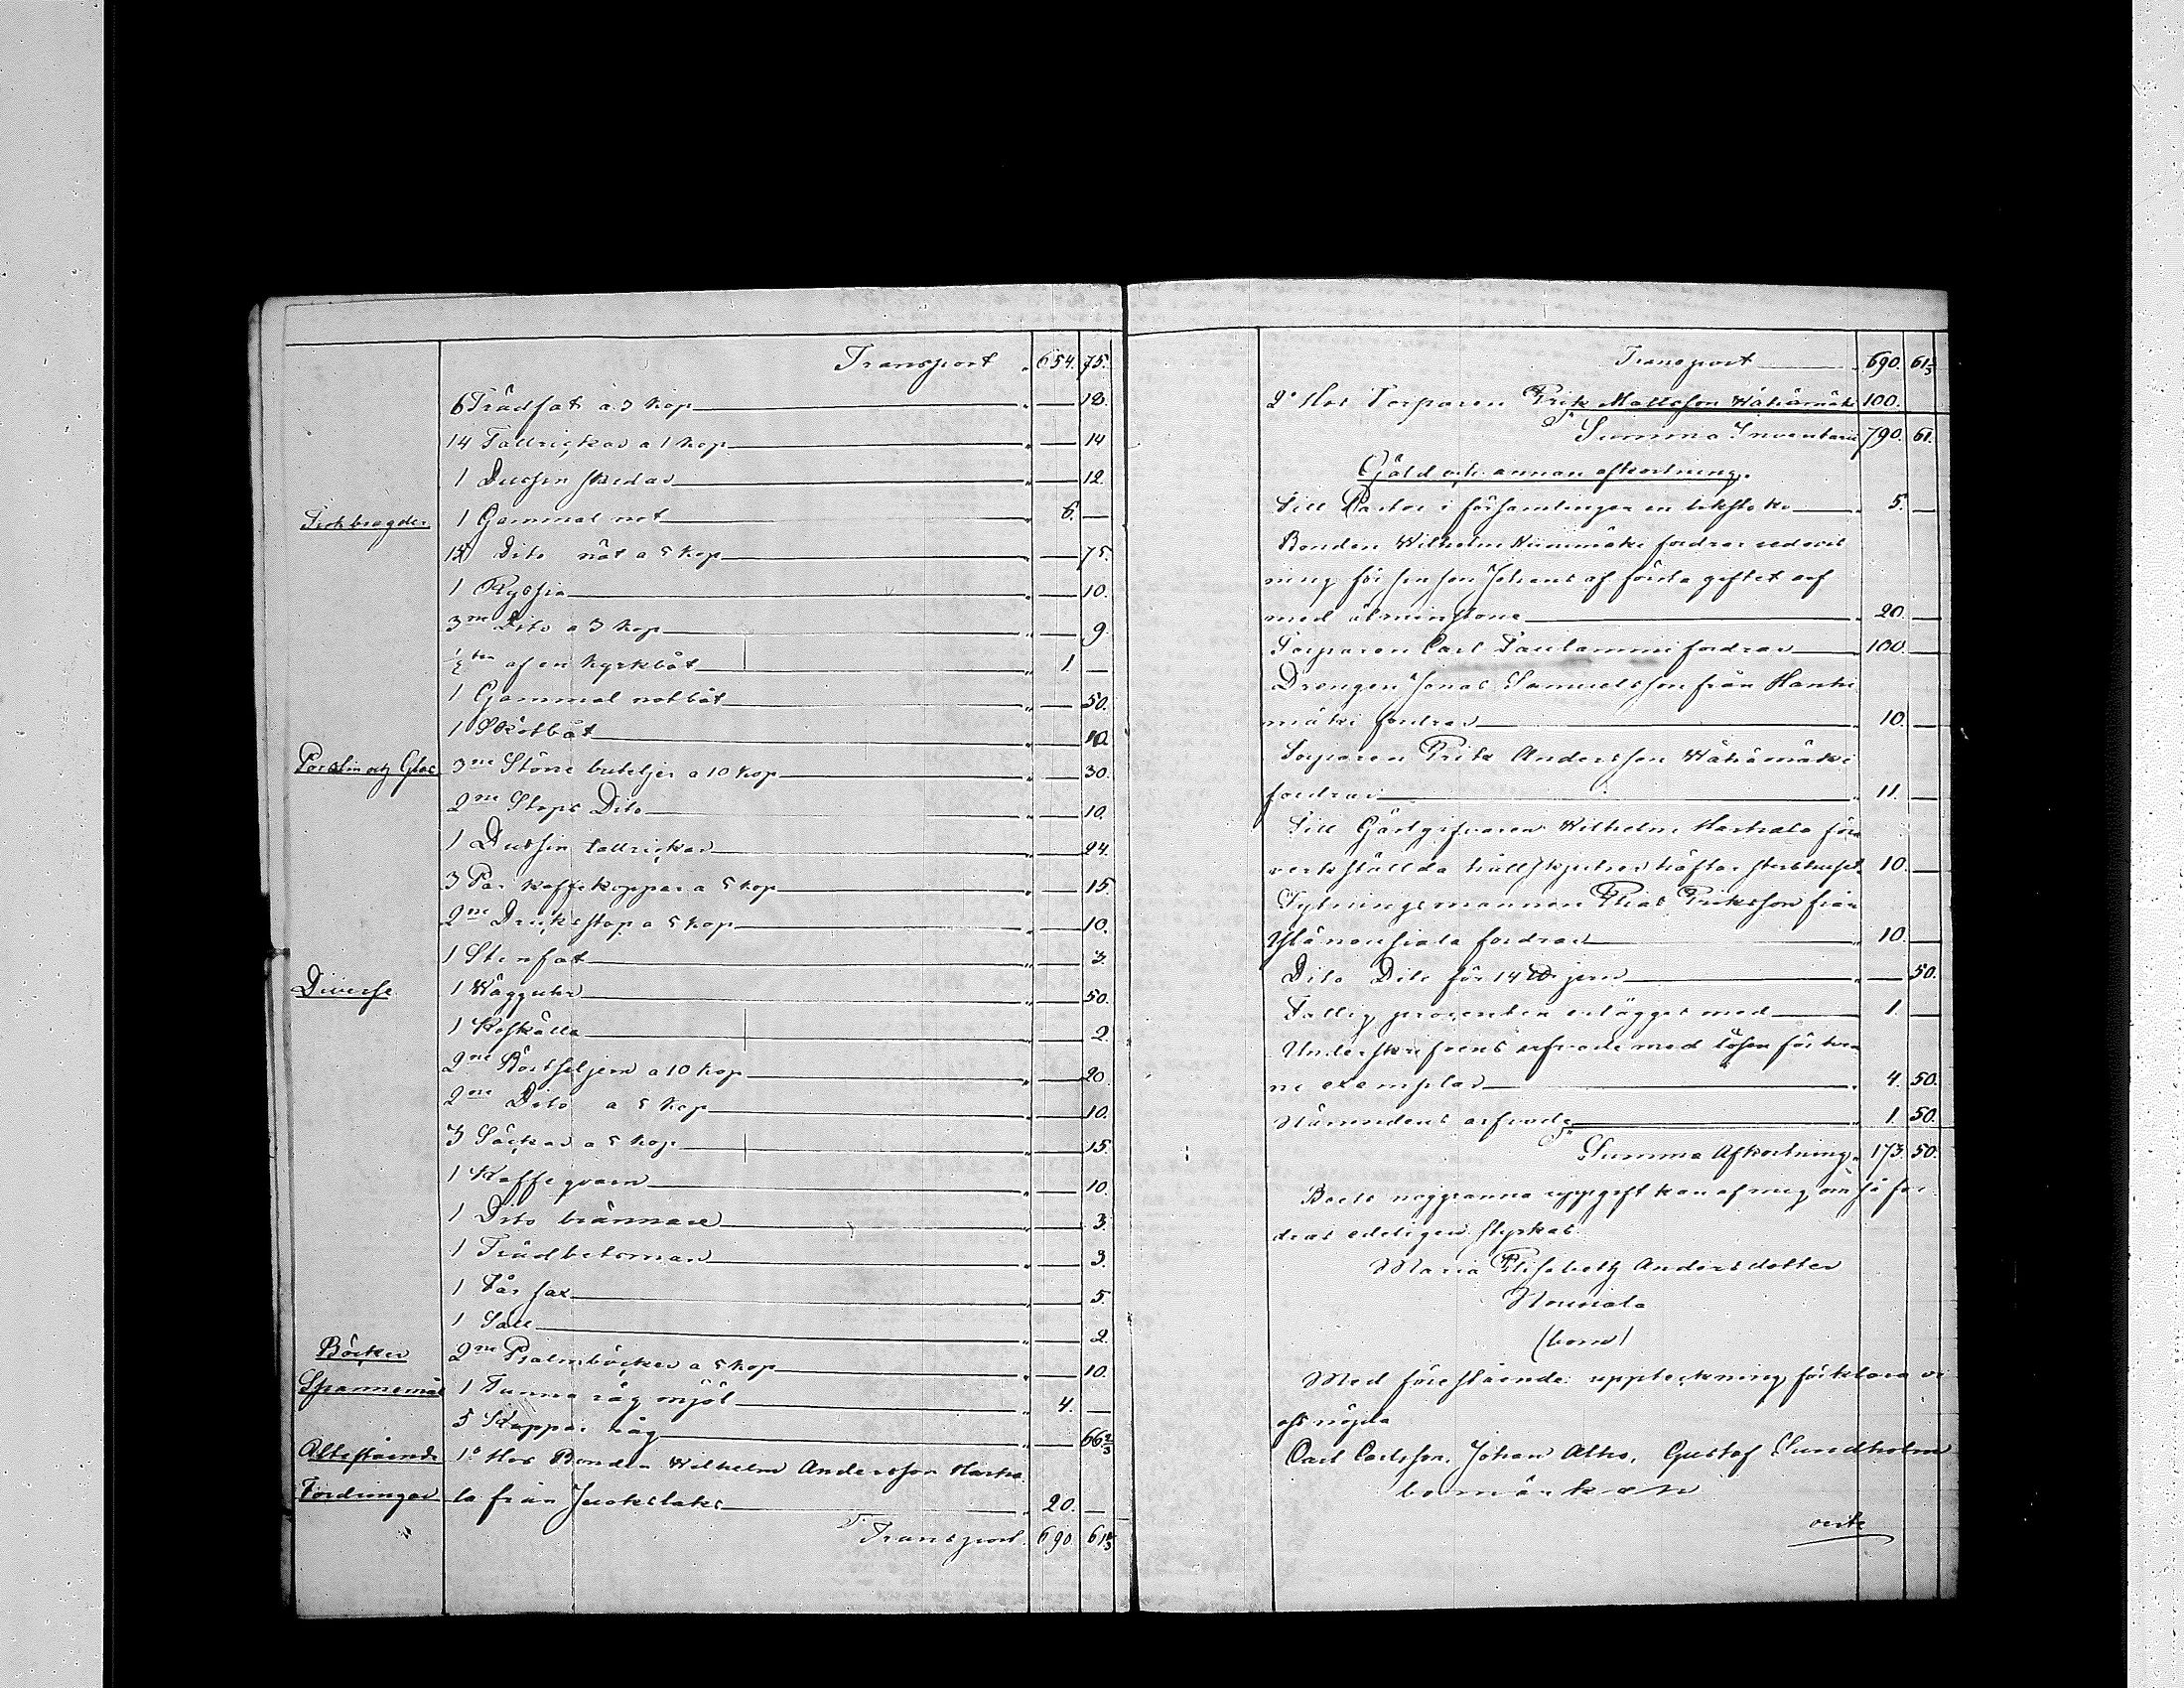 Transport " 654. 75.
6 Trädfat a 3 kop " — 18.
14 Tallrickar a 1 kop " — 14
1 Dussin skedar " — 12
Fiskbragder 1 Gammal not " 6. —
15 Dito nät a 5 kop " — 75.
1 Ryssia " — 10.
3ne Dito a 3 kop " — 9
af en kyrkbåt " 1. —
1 Gammal notbåt " — 50.
1 Skötbåt " — 10.
Porslin och Glas 3ne Större buteljer a 10 kop " — 30.
2ne Stops Dito " — 10.
1 Dussin tallrickar " — 24.
3 Par kaffekoppar a 5 kop " — 15
2ne Drickstop a 5 kop " — 10.
1 Stenfat " — 3.
Diverse 1 Wägguhr " — 50.
1 Koskälla " — 2.
2ne a 10 kop " — 20.
2ne Dito a 5 kop " — 10.
3 Säckar a 5 kop " — 15.
1 Kaffeqvarn " — 10.
1 Dito brännare " — 3.
1 " — 3.
1 Får sax " — 5.
1 " — 2.
Böcker 2ne Psalmböcker a 5 kop " — 10.
Spannemål 1 Tunna råg mjöl " 4. —
5 Kappar råg " — 66 2/3
Utestående 1o Hos Bonden Wilhelm Andersson Harka
Fordringar la från " 20. —
Transport. 690. 61 2/3
Transport " 690. 61 2/3
2o Hos Torparen Erik Mattsson Wähämäki 100.
Summa Inventarii 790. 61.
Gäld och annan afkortning.
Till Pastor i församlingen en likstoko " 5. —
Bonden Wilhelm fordrar redovis
ning för sin son Johans af första giftet arf
med åtminstone " 20. —
Torparen Carl fordrar " 100. —
Drengen Jonas Samuelsson från Hanki
mäki fordrar " 10. —
Torparen Erik Andersson Wähämäki
fordrar " 11. —
Till Gästgifvaren Wilhelm Harkala för
verkställda hållskjutser häftar sterbhuset 10. —
Sytningsmannen Elias Eriksson från
fordrar " 10. —
Dito Dito för 14 ℔ jern " — 50.
Fattig procenten erlägges med " 1. —
Underskrifvens arfvode med lösen för tven
ne exemplar " 4. 50.
Nämndens arfvode " 1. 50.
Summa Afkortning " 173. 50.
Boets noggranna uppgift kan af mig, om så for
dras edeligen styrkas.
Maria Elisabeth Andersdotter
Nousiala
(bom)
Med förestående uppteckning förklara vi
oss nöjda
Carl Carlsson, Johan Alho, Gustaf Sundholm
bomärken